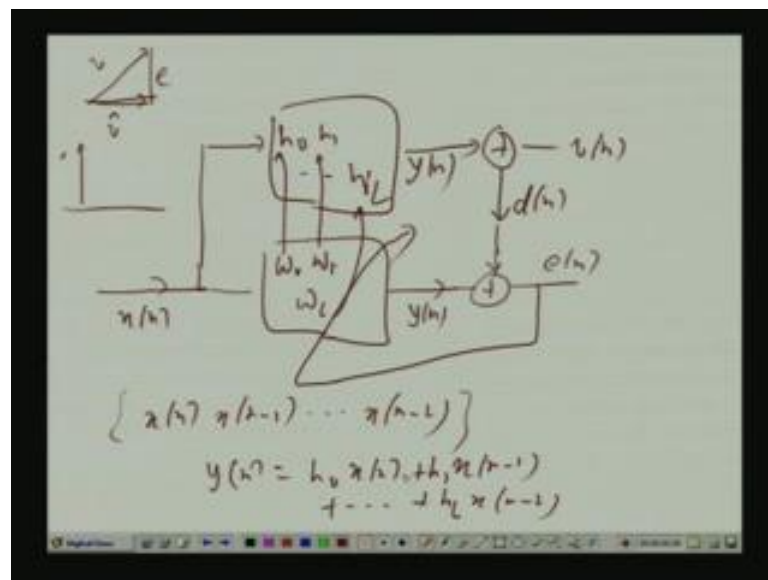 v
e
v̂
h₀ h₁
- - h_L
y(n)
+
v(n)
d(n)
w₀ w₁
w_L
x(n)
y(n)
+
e(n)
{ x(n) x(n-1) ... x(n-L) }
y(n) = h₀ x(n) + h₁ x(n-1)
+ ... + h_L x(n-L)